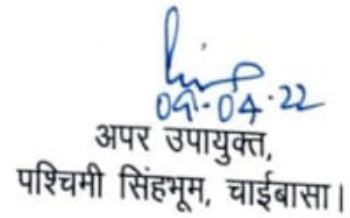 09.04.22
अपर उपायुक्त,
पश्चिमी सिंहभूम, चाईबासा।